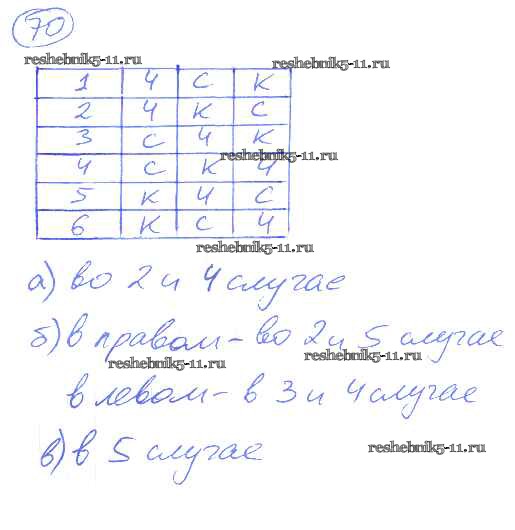 70
reshebnik5-11.ru
reshebnik5-11.ru
1 Ч С К
2 Ч К С
3 С Ч К
reshebnik5-11.ru
4 С К Ч
5 К Ч С
6 К С Ч
reshebnik5-11.ru
а) во 2 и 4 случае
б) в правом - во 2 и 5 случае
reshebnik5-11.ru
reshebnik5-11.ru
в левом - в 3 и 4 случае
в) в 5 случае
reshebnik5-11.ru